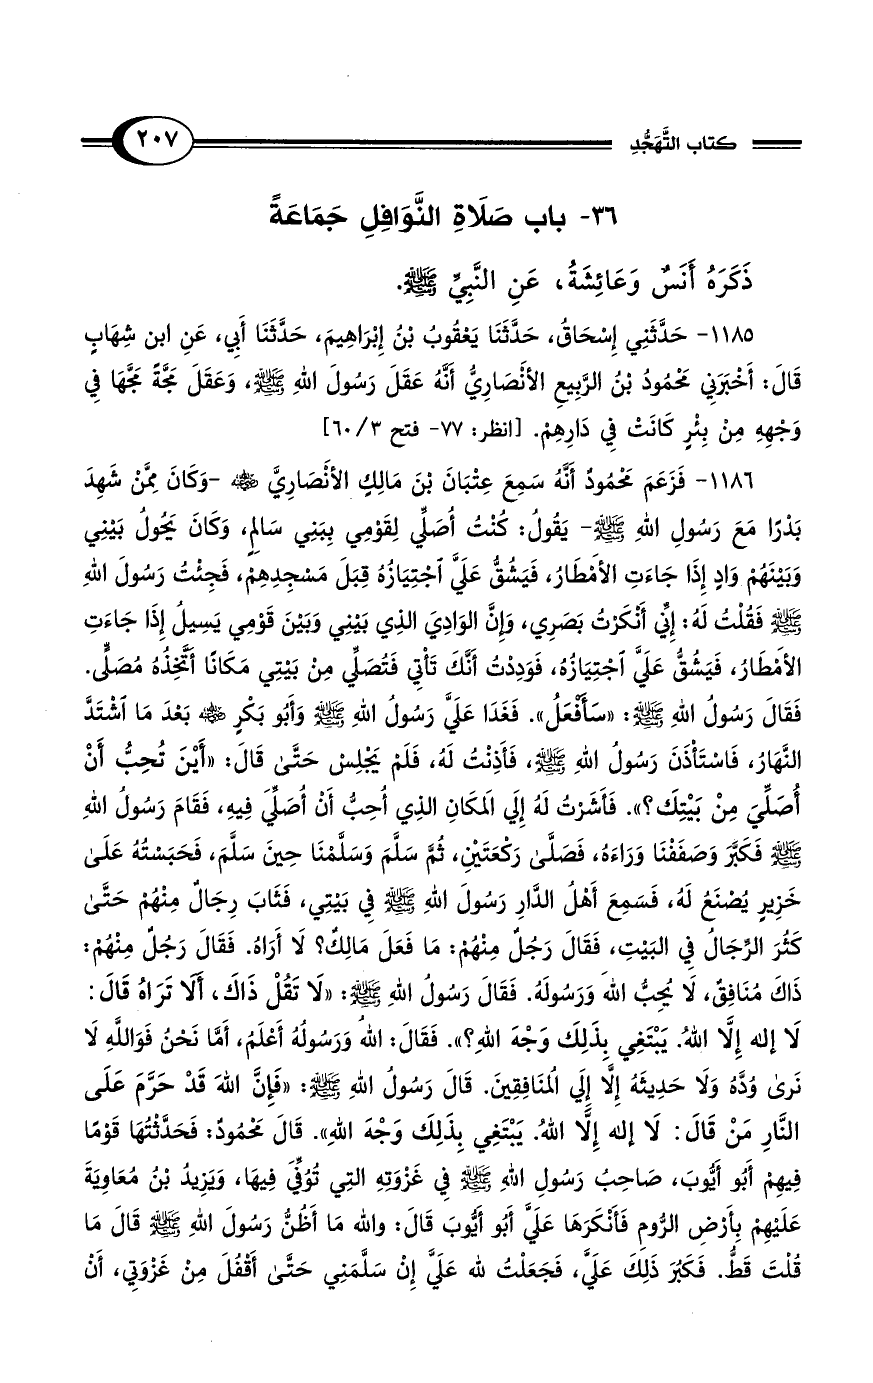 كتاب التَّهَجُّدِ ٢٠٧
٣٦- باب صَلَاةِ النَّوَافِلِ جَمَاعَةً
ذَكَرَهُ أَنَسٌ وَعَائِشَةُ، عَنِ النَّبِيِّ ﷺ.
١١٨٥- حَدَّثَنِي إِسْحَاقُ، حَدَّثَنَا يَعْقُوبُ بْنُ إِبْرَاهِيمَ، حَدَّثَنَا أَبِي، عَنِ ابن شِهَابٍ
قَالَ: أَخْبَرَنِي مَحْمُودُ بْنُ الرَّبِيعِ الأَنْصَارِيُّ أَنَّهُ عَقَلَ رَسُولَ اللهِ ﷺ، وَعَقَلَ مَجَّةً مَجَّهَا فِي
وَجْهِهِ مِنْ بِئْرٍ كَانَتْ فِي دَارِهِمْ. [انظر: ٧٧- فتح ٣/ ٦٠]
١١٨٦- فَزَعَمَ مَحْمُودٌ أَنَّهُ سَمِعَ عِتْبَانَ بْنَ مَالِكٍ الأَنْصَارِيَّ ﵁ -وَكَانَ مِمَّنْ شَهِدَ
بَدْرًا مَعَ رَسُولِ اللهِ ﷺ- يَقُولُ: كُنْتُ أُصَلِّي لِقَوْمِي بِبَنِي سَالِمٍ، وَكَانَ يَحُولُ بَيْنِي
وَبَيْنَهُمْ وَادٍ إِذَا جَاءَتِ الأَمْطَارُ، فَيَشُقُّ عَلَيَّ اَجْتِيَازُهُ قِبَلَ مَسْجِدِهِمْ، فَجِئْتُ رَسُولَ اللهِ
ﷺ فَقُلْتُ لَهُ: إِنِّي أَنْكَرْتُ بَصَرِي، وَإِنَّ الوَادِيَ الذِي بَيْنِي وَبَيْنَ قَوْمِي يَسِيلُ إِذَا جَاءَتِ
الأَمْطَارُ، فَيَشُقُّ عَلَيَّ اَجْتِيَازُهُ، فَوَدِدْتُ أَنَّكَ تَأْتِي فَتُصَلِّي مِنْ بَيْتِي مَكَانًا أَتَّخِذُهُ مُصَلًّى.
فَقَالَ رَسُولُ اللهِ ﷺ: «سَأَفْعَلُ». فَغَدَا عَلَيَّ رَسُولُ اللهِ ﷺ وَأَبُو بَكْرٍ ﵁ بَعْدَ مَا اَشْتَدَّ
النَّهَارُ، فَاسْتَأْذَنَ رَسُولُ اللهِ ﷺ، فَأَذِنْتُ لَهُ، فَلَمْ يَجْلِسْ حَتَّى قَالَ: «أَيْنَ تُحِبُّ أَنْ
أُصَلِّيَ مِنْ بَيْتِكَ؟». فَأَشَرْتُ لَهُ إِلَي المَكَانِ الذِي أُحِبُّ أَنْ أُصَلِّيَ فِيهِ، فَقَامَ رَسُولُ اللهِ
ﷺ فَكَبَّرَ وَصَفَفْنَا وَرَاءَهُ، فَصَلَّى رَكْعَتَيْنِ، ثُمَّ سَلَّمَ وَسَلَّمْنَا حِينَ سَلَّمَ، فَحَبَسْتُهُ عَلَى
خَزِيرٍ يُصْنَعُ لَهُ، فَسَمِعَ أَهْلُ الدَّارِ رَسُولَ اللهِ ﷺ فِي بَيْتِي، فَثَابَ رِجَالٌ مِنْهُمْ حَتَّى
كَثُرَ الرِّجَالُ فِي البَيْتِ، فَقَالَ رَجُلٌ مِنْهُمْ: مَا فَعَلَ مَالِكٌ؟ لَا أَرَاهُ. فَقَالَ رَجُلٌ مِنْهُمْ:
ذَاكَ مُنَافِقٌ، لَا يُحِبُّ اللهَ وَرَسُولَهُ. فَقَالَ رَسُولُ اللهِ ﷺ: «لَا تَقُلْ ذَاكَ، أَلَا تَرَاهُ قَالَ:
لَا إله إِلَّا اللهُ. يَبْتَغِي بِذَلِكَ وَجْهَ اللهِ؟». فَقَالَ: اللهُ وَرَسُولُهُ أَعْلَمُ، أَمَّا نَحْنُ فَوَاللَّهِ لَا
نَرى وُدَّهُ وَلَا حَدِيثَهُ إِلَّا إِلَي المُنَافِقِينَ. قَالَ رَسُولُ اللهِ ﷺ: «فَإِنَّ اللهَ قَدْ حَرَّمَ عَلَى
النَّارِ مَنْ قَالَ: لَا إله إِلَّا اللهُ. يَبْتَغِي بِذَلِكَ وَجْهَ اللهِ». قَالَ مَحْمُودٌ: فَحَدَّثْتُهَا قَوْمًا
فِيهِمْ أَبُو أَيُّوبَ، صَاحِبُ رَسُولِ اللهِ ﷺ فِي غَزْوَتِهِ التِي تُوُفِّيَ فِيهَا، وَيَزِيدُ بْنُ مُعَاوِيَةَ
عَلَيْهِمْ بِأَرْضِ الرُّومِ فَأَنْكَرَهَا عَلَيَّ أَبُو أَيُّوبَ قَالَ: والله مَا أَظُنُّ رَسُولَ اللهِ ﷺ قَالَ مَا
قُلْتَ قَطُّ. فَكَبُرَ ذَلِكَ عَلَيَّ، فَجَعَلْتُ لله عَلَيَّ إِنْ سَلَّمَنِي حَتَّى أَقْفُلَ مِنْ غَزْوَتِي، أَنْ